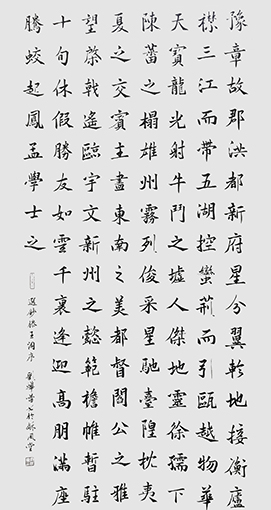 豫章故郡洪都新府星分翼軫地接衡廬
襟三江而帶五湖控蠻荊而引甌越物華
天寶龍光射牛鬥之墟人傑地靈徐孺下
陳蕃之榻雄州霧列俊采星馳臺隍枕夷
夏之交賓主盡東南之美都督閻公之雅
望棨戟遙臨宇文新州之懿範襜帷暫駐
十旬休假勝友如雲千裏逢迎高朋滿座
騰蛟起鳳孟學士之
選抄滕王閣序